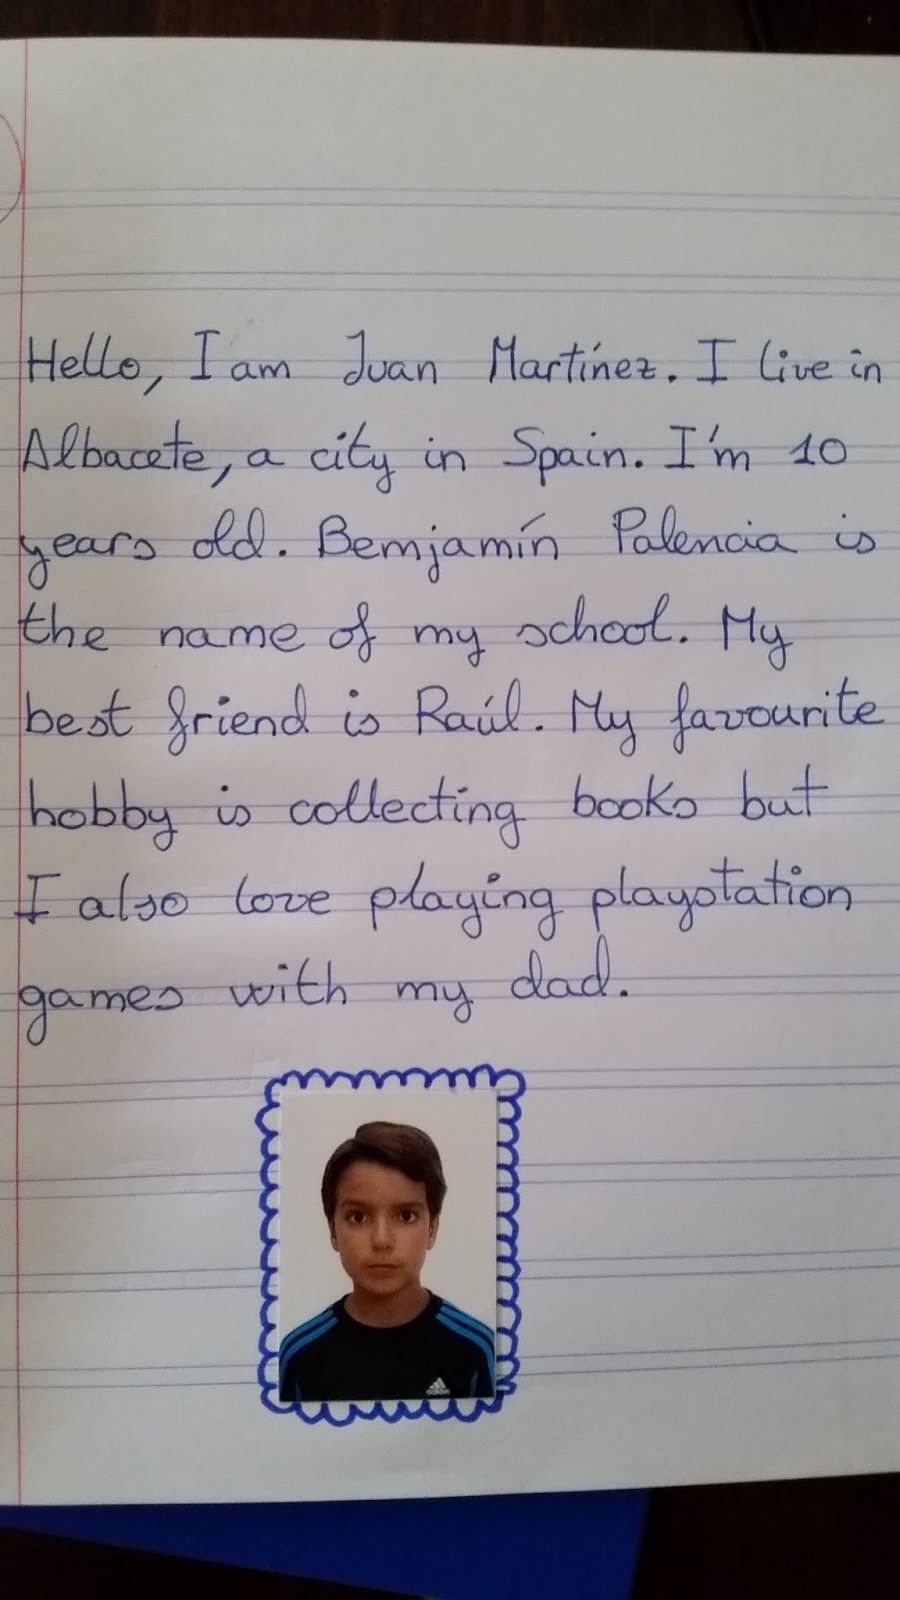 Hello, I am Juan Martínez. I live in
Albacete, a city in Spain. I'm 10
years old. Bemjamín Palencia is
the name of my school. My
best friend is Raúl. My favourite
hobby is collecting books but
I also love playing playstation
games with my dad.
adidas